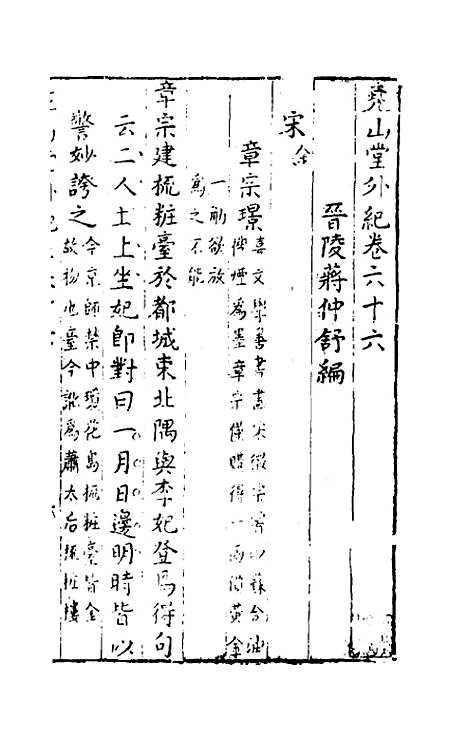 堯山堂外紀卷六十六
晉陵蔣仲舒編
宋金
章宗璟
喜文學善書畫宋徽宗嘗以蘇合油
烟為墨章宗僅購得一兩黃金
一觔欲放
為之不能
章宗建梳粧臺於都城東北隅與李妃登焉得句
云二人土上坐妃即對曰一月日邊明時皆以
警妙誇之
今京師禁中瓊花島梳粧臺皆金
故物也臺今訛為蕭太后梳粧樓